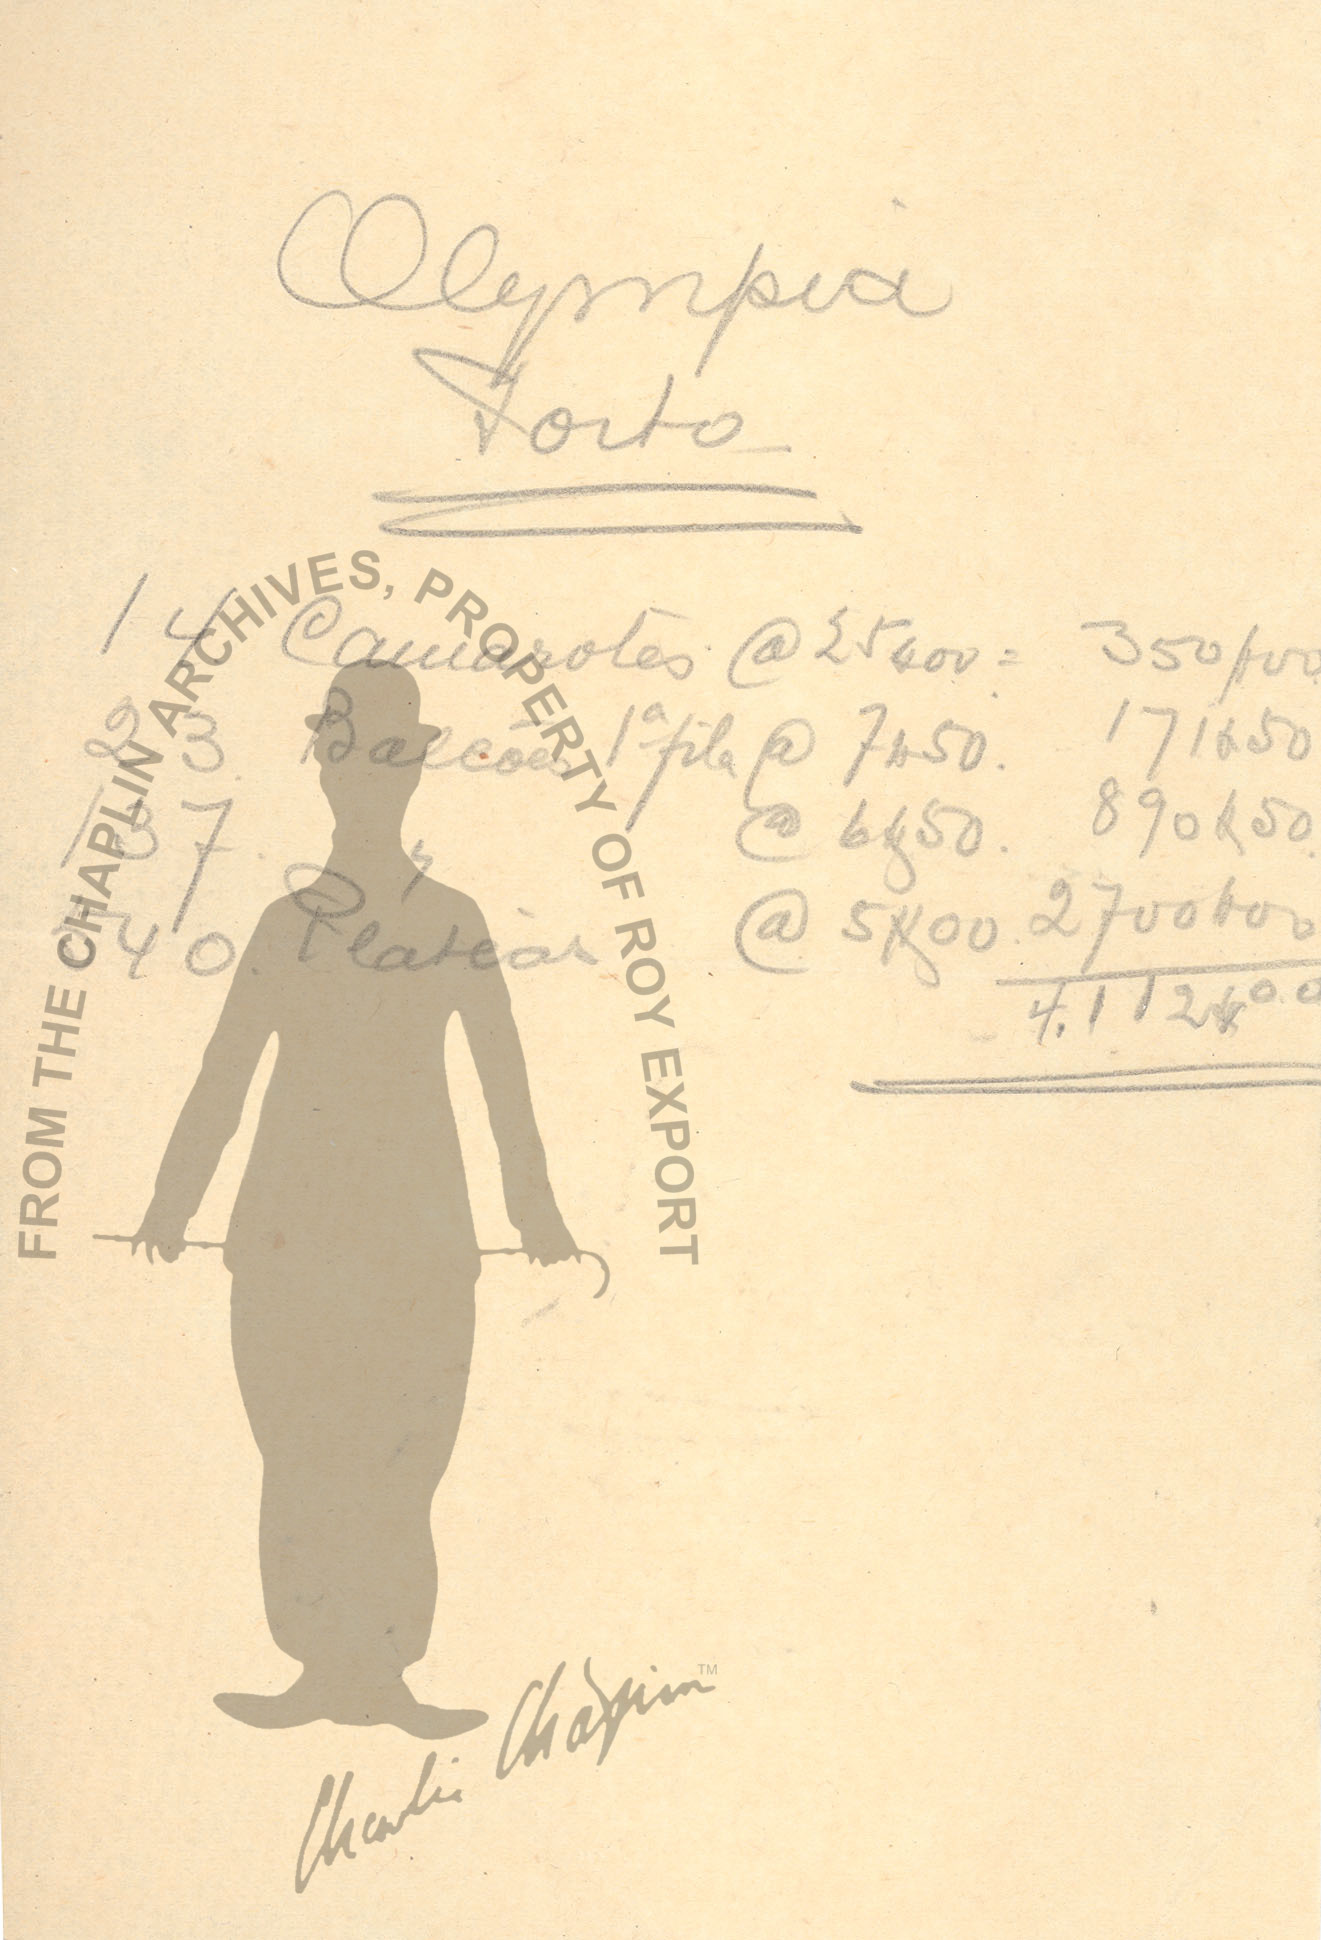 Olympia
Porto
14 Camarotes @ 25$00 = 350$00
23 Balcões 1ª fila @ 7$50. 171$50
137 " @ 6$50. 890$50
540 Plateias @ 5$00. 2700$00
4.112$00
FROM THE CHAPLIN ARCHIVES, PROPERTY OF ROY EXPORT
Charlie Chaplin™